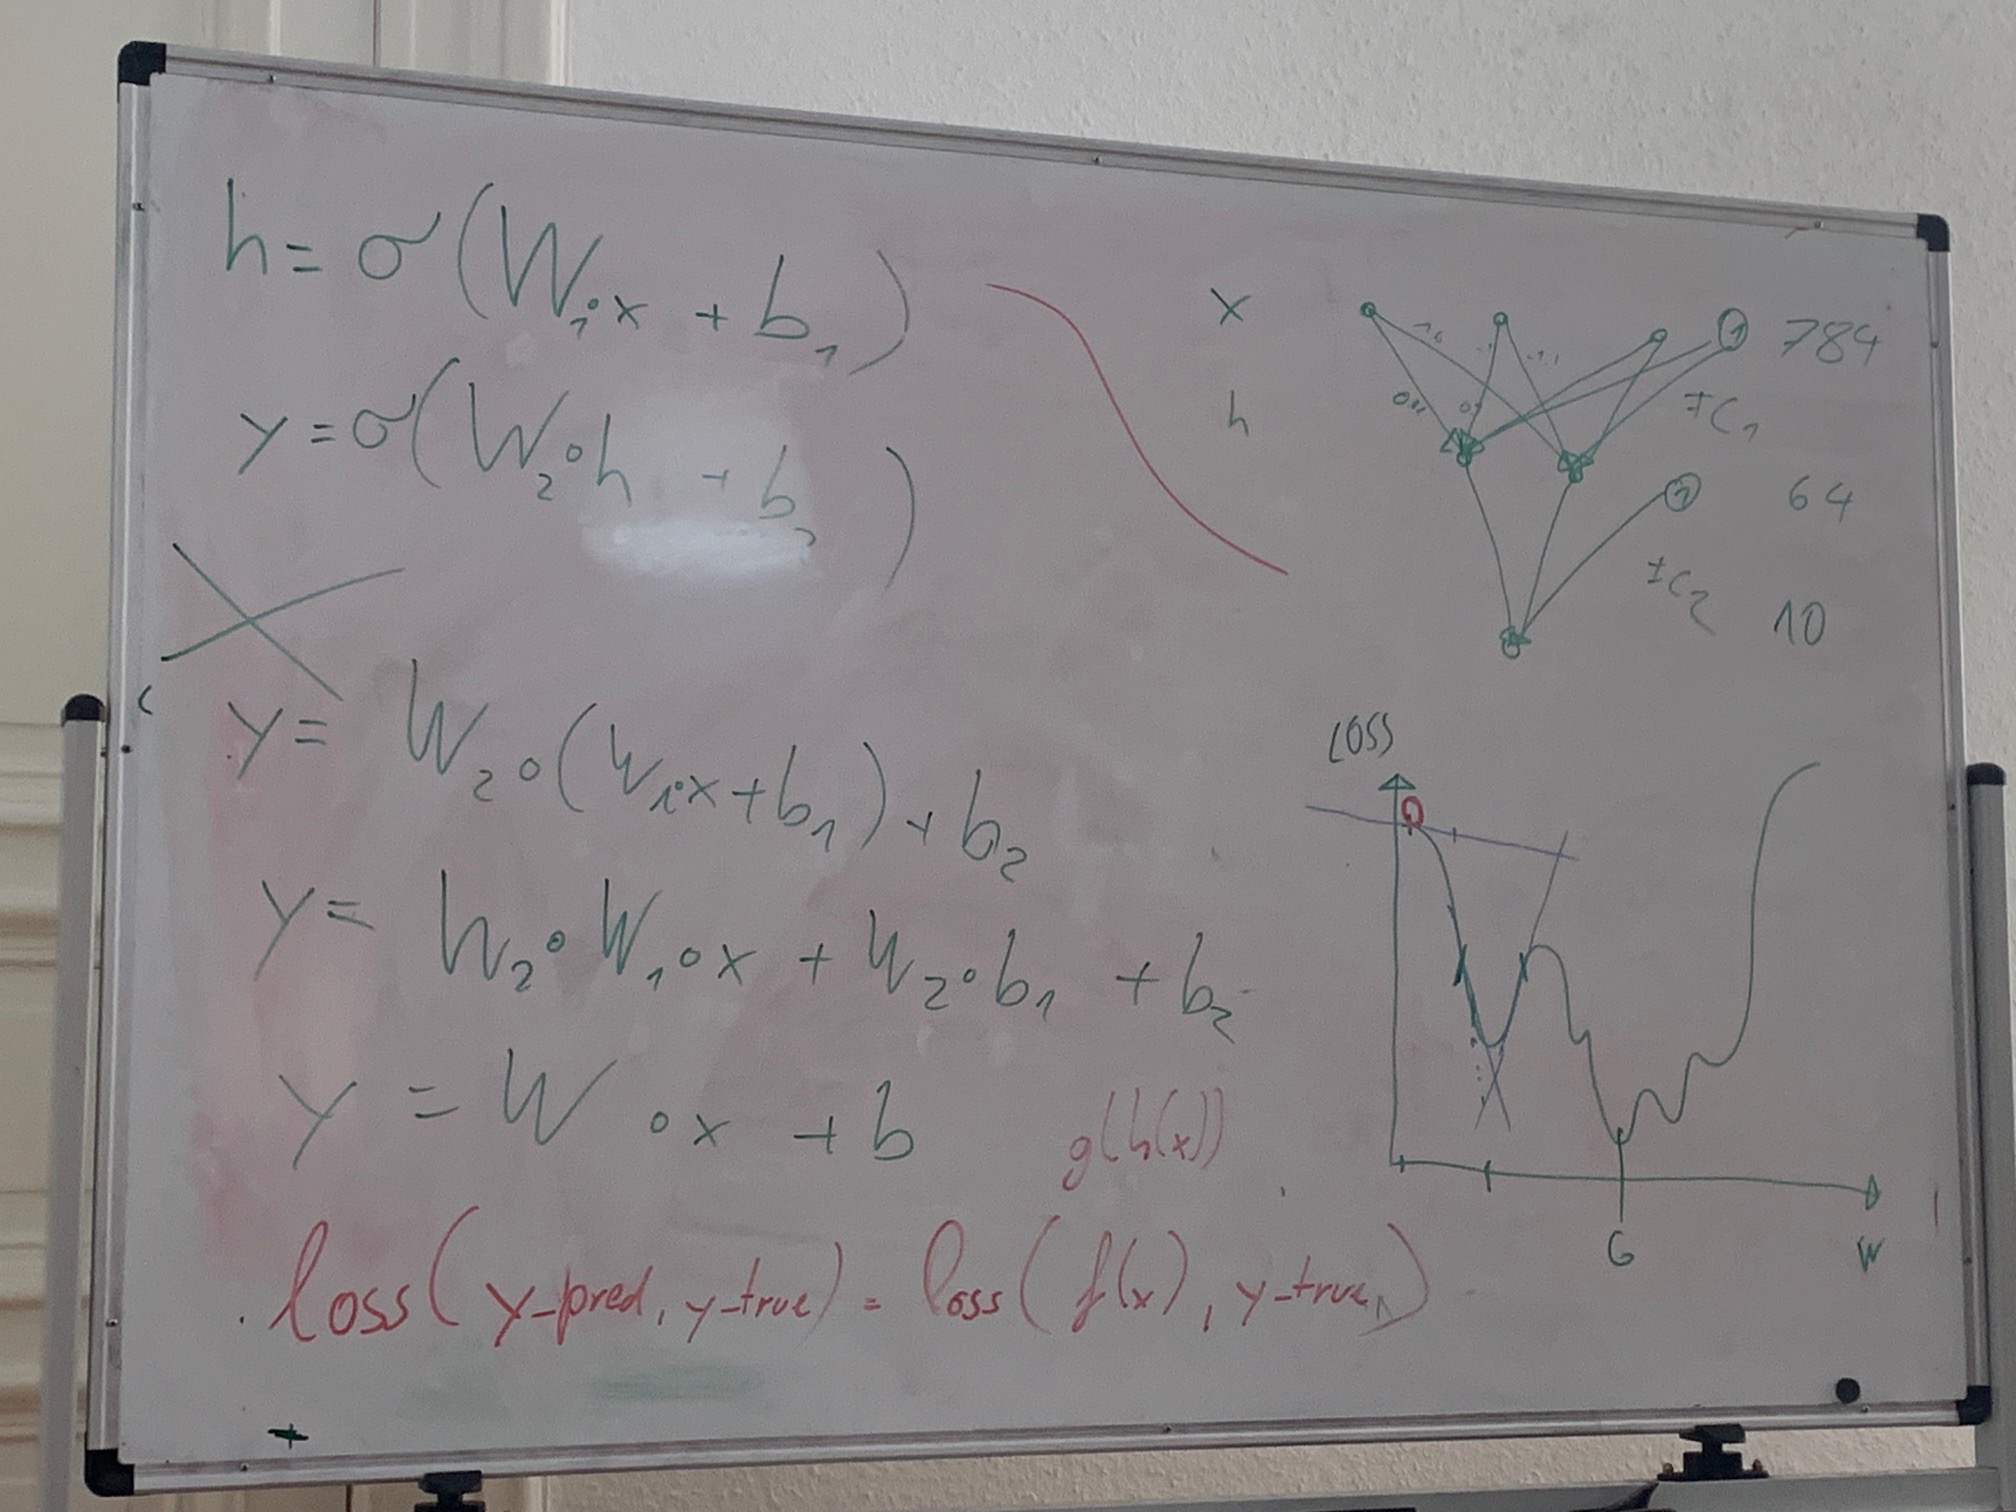 h = σ(W₁∘x + b₁)
y = σ(W₂∘h + b₂)
y = W₂∘(W₁∘x + b₁) + b₂
y = W₂∘W₁∘x + W₂∘b₁ + b₂
y = W ∘x + b
g(h(x))
loss(y-pred, y-true) = loss(f(x), y-true)
x 1 784
h ±C₁
1 64
±C₂
10
LOSS
G
W